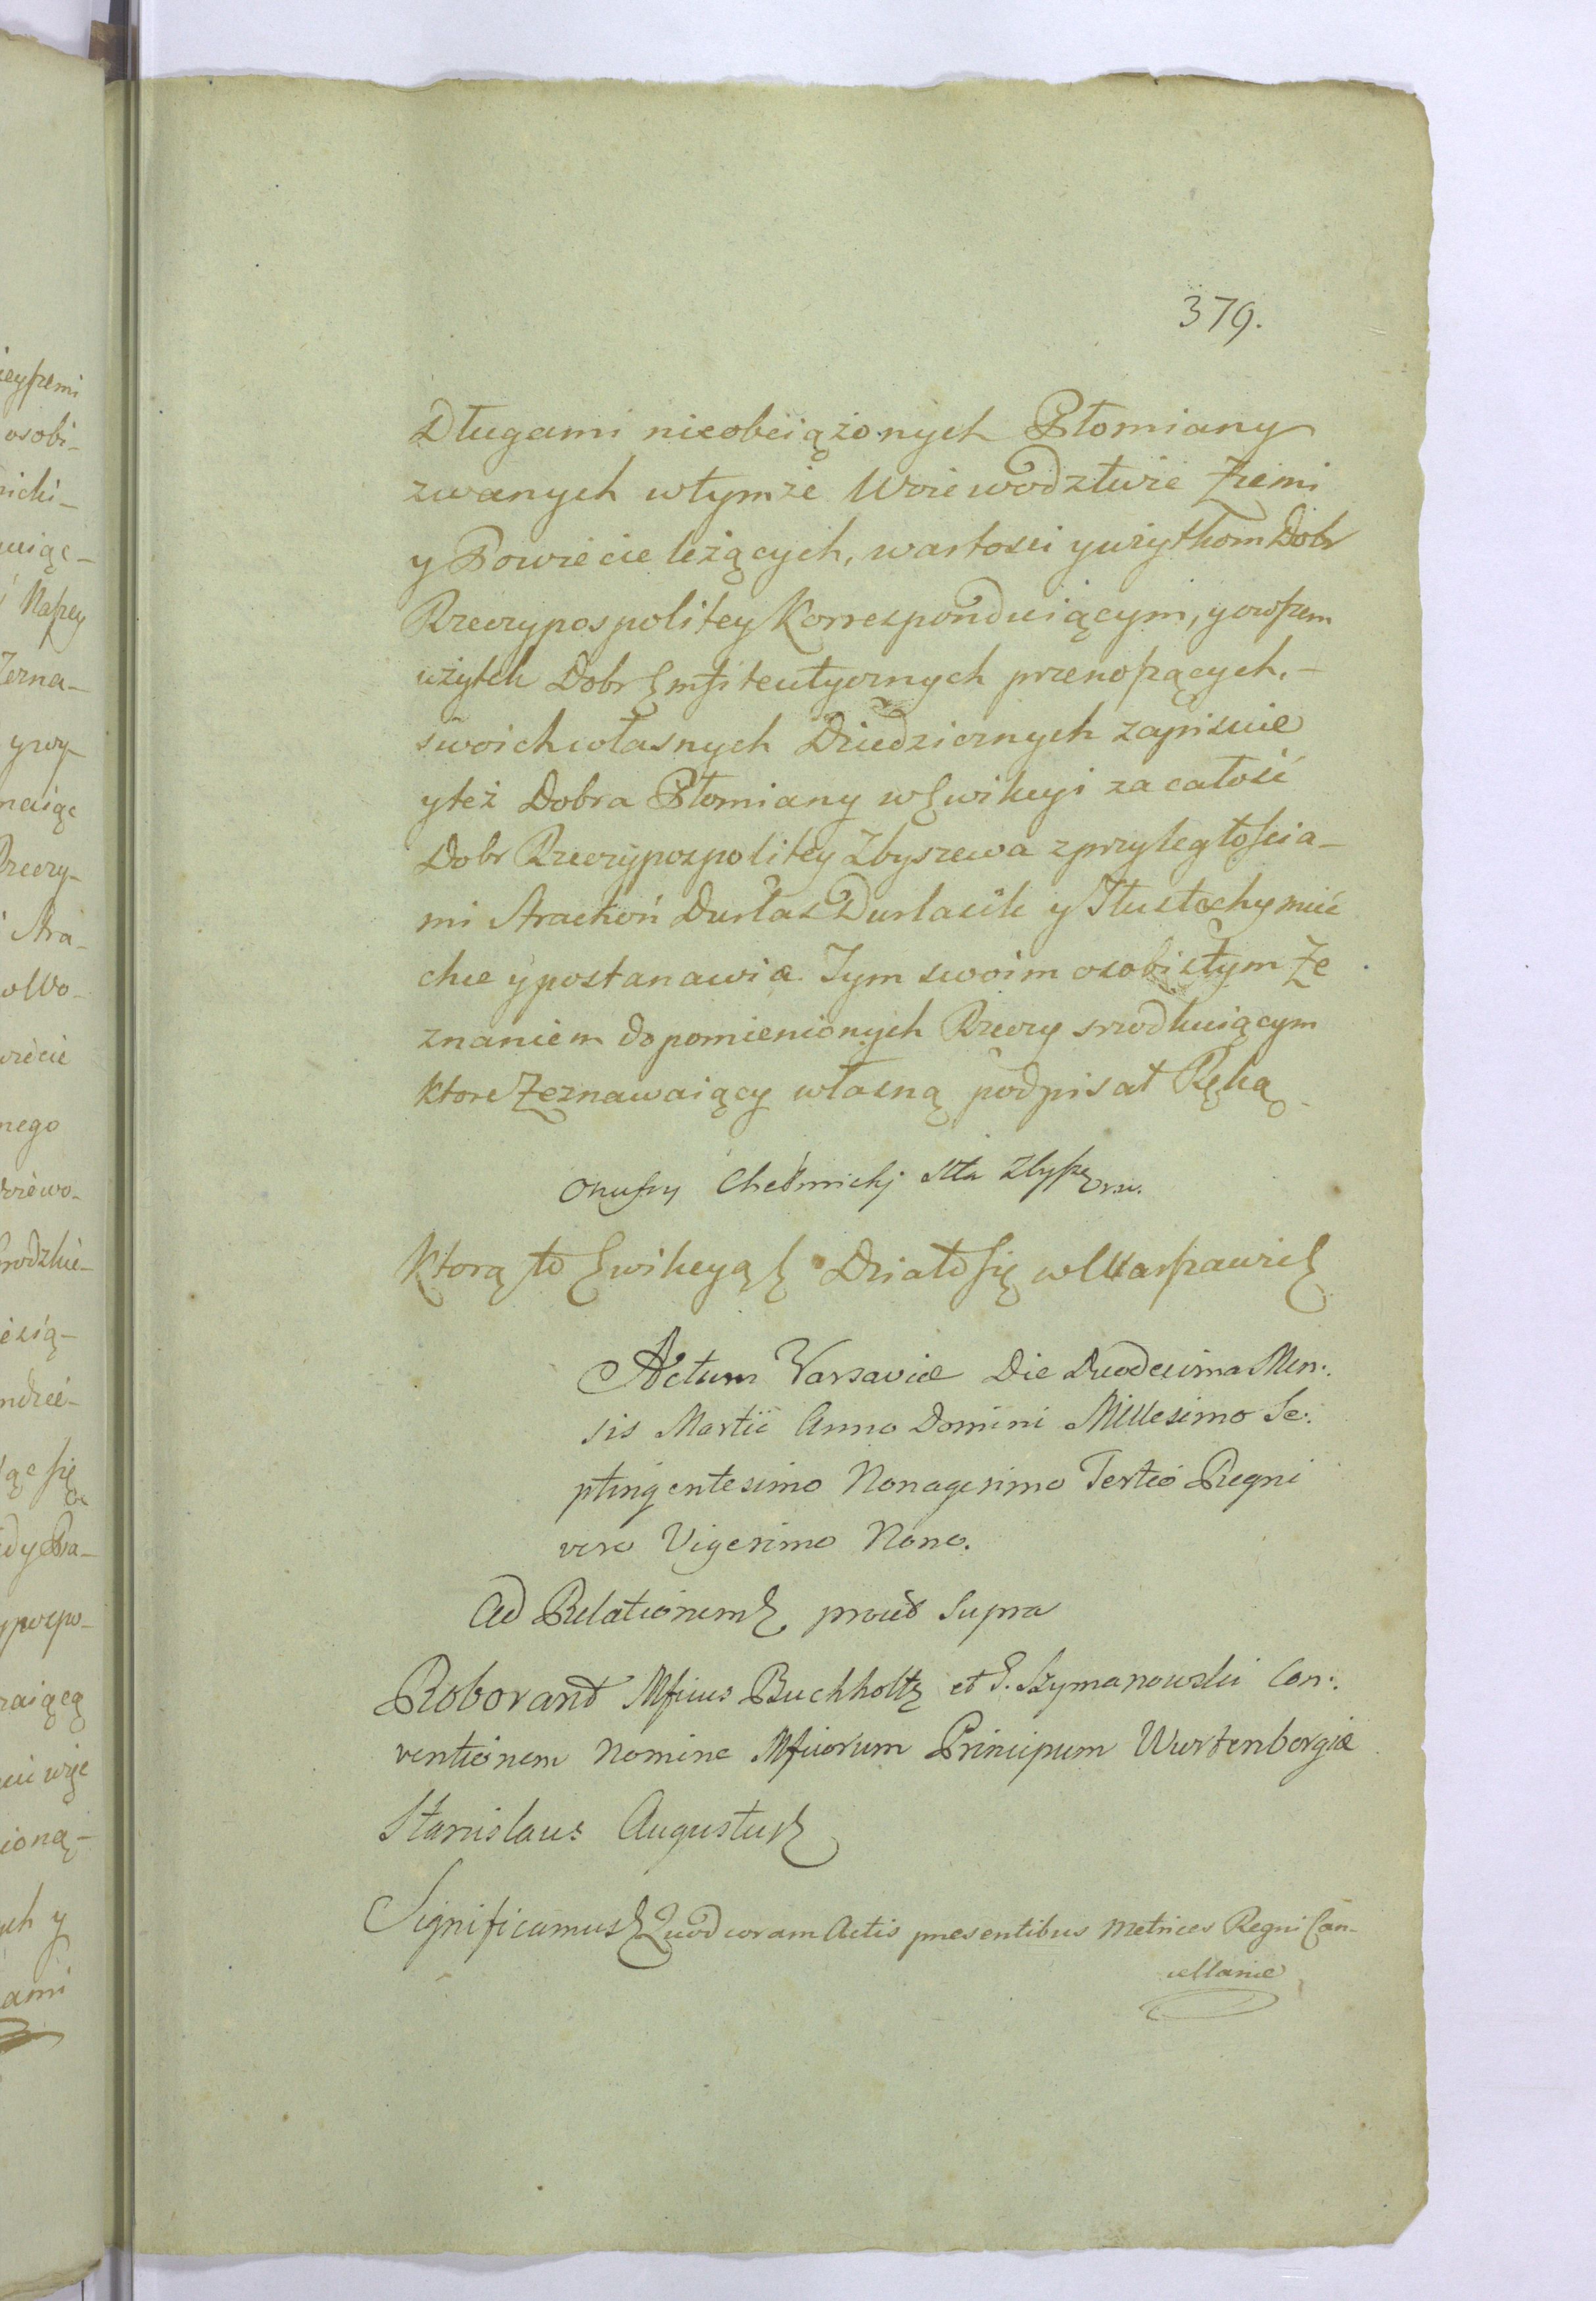 379.
Długami nieobciążonych Płomiany
zwanych wtymże Woiewodztwie Ziemi
y Powiecie leżących, wartości yużytkom Dobr
Rzeczypospolitey Korrespunduiącym, yowszem
użytek Dobr Emfiteutycznych przenoszących,-
swoichwłasnych Dziedzicznych zapisuie
yteż Dobra Płomiany wEwikcyi za całość
Dobr Rzeczypospolitey Zbyszewa zprzyległościa-
mi Strachoń Durlas Durlasik y Tłustochy mieć
chce ypostanawia. Tym swoim osobistym Ze
znaniem do pomienionych Rzeczy srzodkuiącym
Ktore Zeznawaiący własną podpisał Ręką
Onufry Chełmicki Stta Zbysze
Ktorą to Ewikcyą Działo się wWarszawie
Actum Varsaviæ Die Duodecima Men:
sis Martii Anno Domini Millesimo Se:
ptingentesimo Nonagesimo Tertio Regni
vero Vigesimo Nono.
Ad Relationem prout Supra
Roborant Mficus Buchholtz et G. Szymanowski Con:
ventionem nomine Mficorum Principum Wurtenbergiæ
Stanislaus Augustus
Significamus Quod coram Actis præsentibus Metrices Regni Can-
cellariæ
ieyszemi
osobi-
nicki-
uiąc-
Naszey
Zezna-
y wy-
naiąc
Rzeczy-
Stra-
wWo-
wiecie
nego
dziewo-
Grodzkie-
ndzie-
ąc się
dy Pra-
ypospo-
raiącą
ioną-
ych y
ami